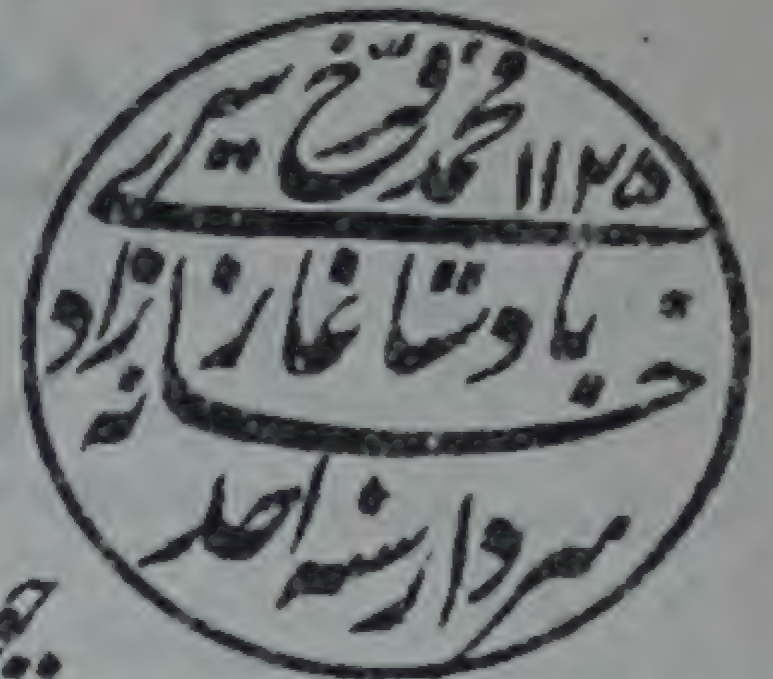 محمد فرخ سیر ۱۱۲۵
بادشاه غازی خانه زاد
سردار سنه احد